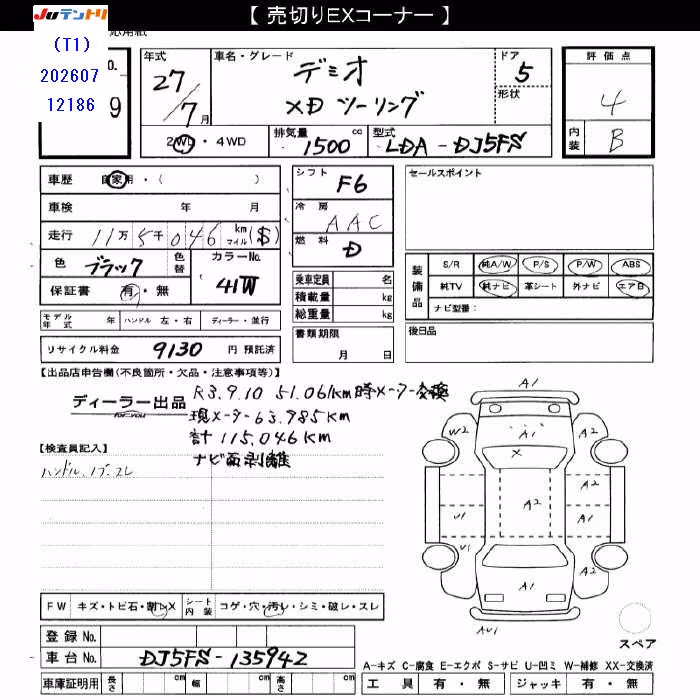 【 売切りEXコーナー 】
JUテントリ
(T1)
202607
12186
9
年式 27/7月
車名・グレード デミオ
XD ツーリング
ドア 5
形状
2WD・4WD
排気量 1500 cc
型式 LDA-DJ5FS
評価点 4
内装 B
車歴 自家用・( )
車検 年 月
走行 11万5千046 km マイル ($)
色 ブラック 色替
カラーNo. 41W
保証書 有・無
シフト F6
冷房 AAC
燃料 D
乗車定員 名
積載量 kg
総重量 kg
書類期限
月 日
セールスポイント
装備品
S/R 純A/W P/S P/W ABS
純TV 純ナビ 革シート 外ナビ エアB
ナビ型番:
後日品
モデル年式 年 ハンドル 左・右 ディーラー・並行
リサイクル料金 9130 円 預託済
【出品店申告欄(不良箇所・欠品・注意事項等)】
ディーラー出品
FOR YOU
R3.9.10 51.061km時メーター交換
現メーター63.985km
計 115.046km
ナビ面剥離
【検査員記入】
ハンドル、ノブ、スレ
A1
W2 A1 A2
X
A2 A2
U1 A1
U1 A2
A1
AU1
スペア
FW キズ・トビ石・割レX
シート内装 コゲ・穴・汚レ・シミ・破レ・スレ
登録No.
車台No. DJ5FS-135942
車庫証明用 長さ cm 幅 cm 高さ cm
A-キズ C-腐食 E-エクボ S-サビ U-凹ミ W-補修 XX-交換済
工具 有・無 ジャッキ 有・無